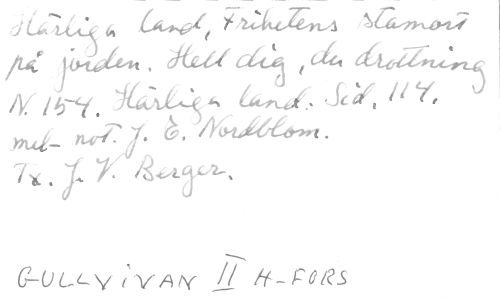 Härliga land, Frihetens stamort
på jorden. Hell dig, du drottning
N. 154. Härliga land. Sid. 114.
mel- not. J. E. Nordblom.
Tx. J. V. Berger.
GULLViVAN II H-FORS